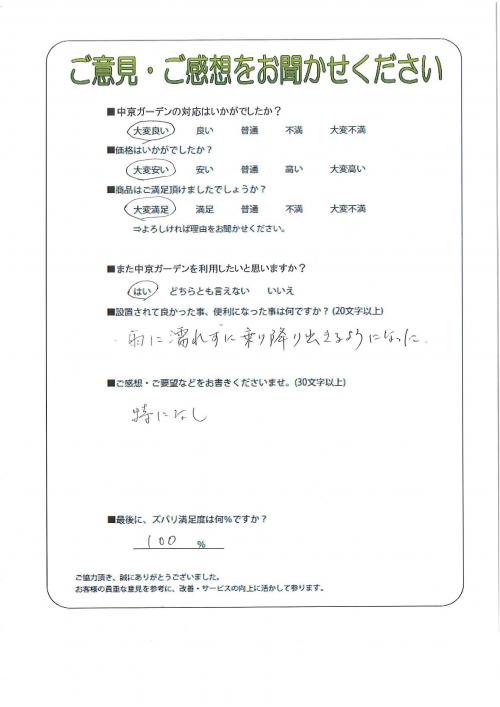 ご意見・ご感想をお聞かせください
■中京ガーデンの対応はいかがでしたか？
大変良い 良い 普通 不満 大変不満
■価格はいかがでしたか？
大変安い 安い 普通 高い 大変高い
■商品はご満足頂けましたでしょうか？
大変満足 満足 普通 不満 大変不満
⇒よろしければ理由をお聞かせください。
■また中京ガーデンを利用したいと思いますか？
はい どちらとも言えない いいえ
■設置されて良かった事、便利になった事は何ですか？(20文字以上)
・雨に濡れずに乗り降り出きるようになった.
■ご感想・ご要望などをお書きくださいませ。(30文字以上)
特になし
■最後に、ズバリ満足度は何%ですか？
100 %
ご協力頂き、誠にありがとうございました。
お客様の貴重な意見を参考に、改善・サービスの向上に活かして参ります。